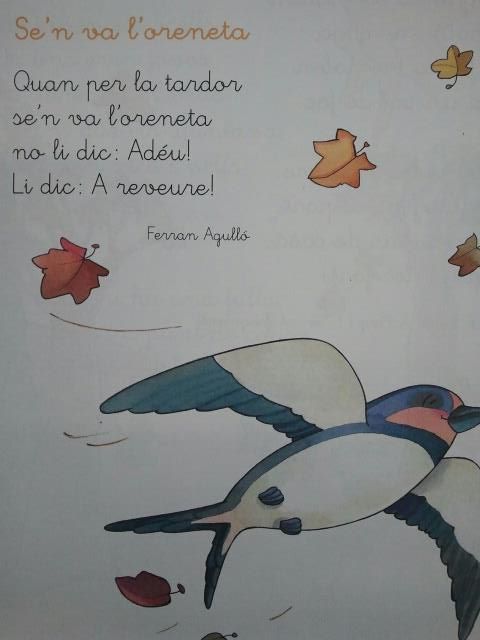 Se'n va l'oreneta
Quan per la tardor
se'n va l'oreneta
no li dic: Adéu!
Li dic: A reveure!
Ferran Agulló